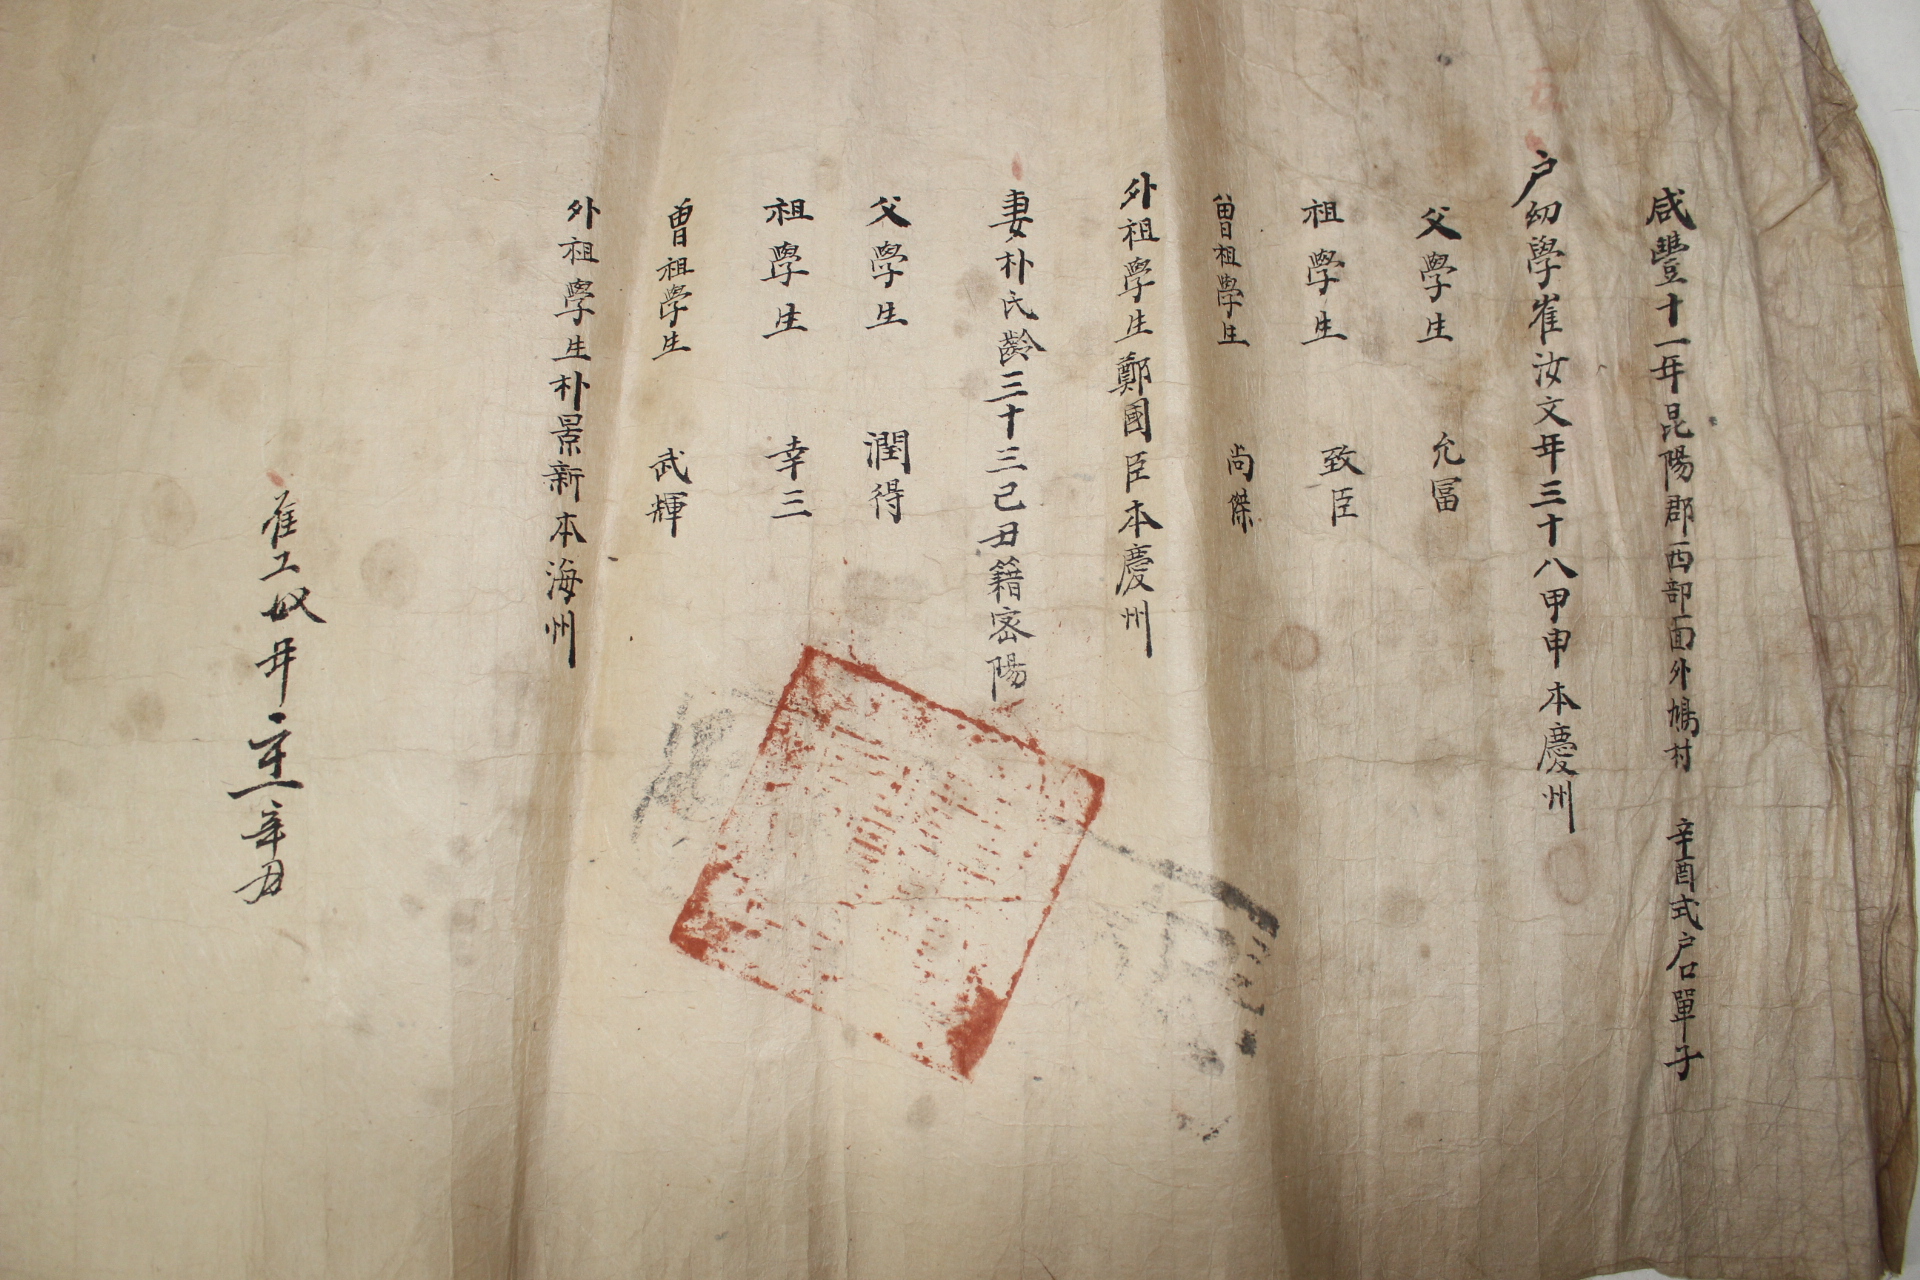 咸豐十一年昆陽郡西部面外鳩村 辛酉式戶口單子
戶幼學崔汝文年三十八甲申本慶州
父學生 允冨
祖學生 致臣
曾祖學生 尚傑
外祖學生鄭國臣本慶州
妻朴氏齡三十三己丑籍密陽
父學生 潤得
祖學生 幸三
曾祖學生 武輝
外祖學生朴景新本海州
年 辛丑